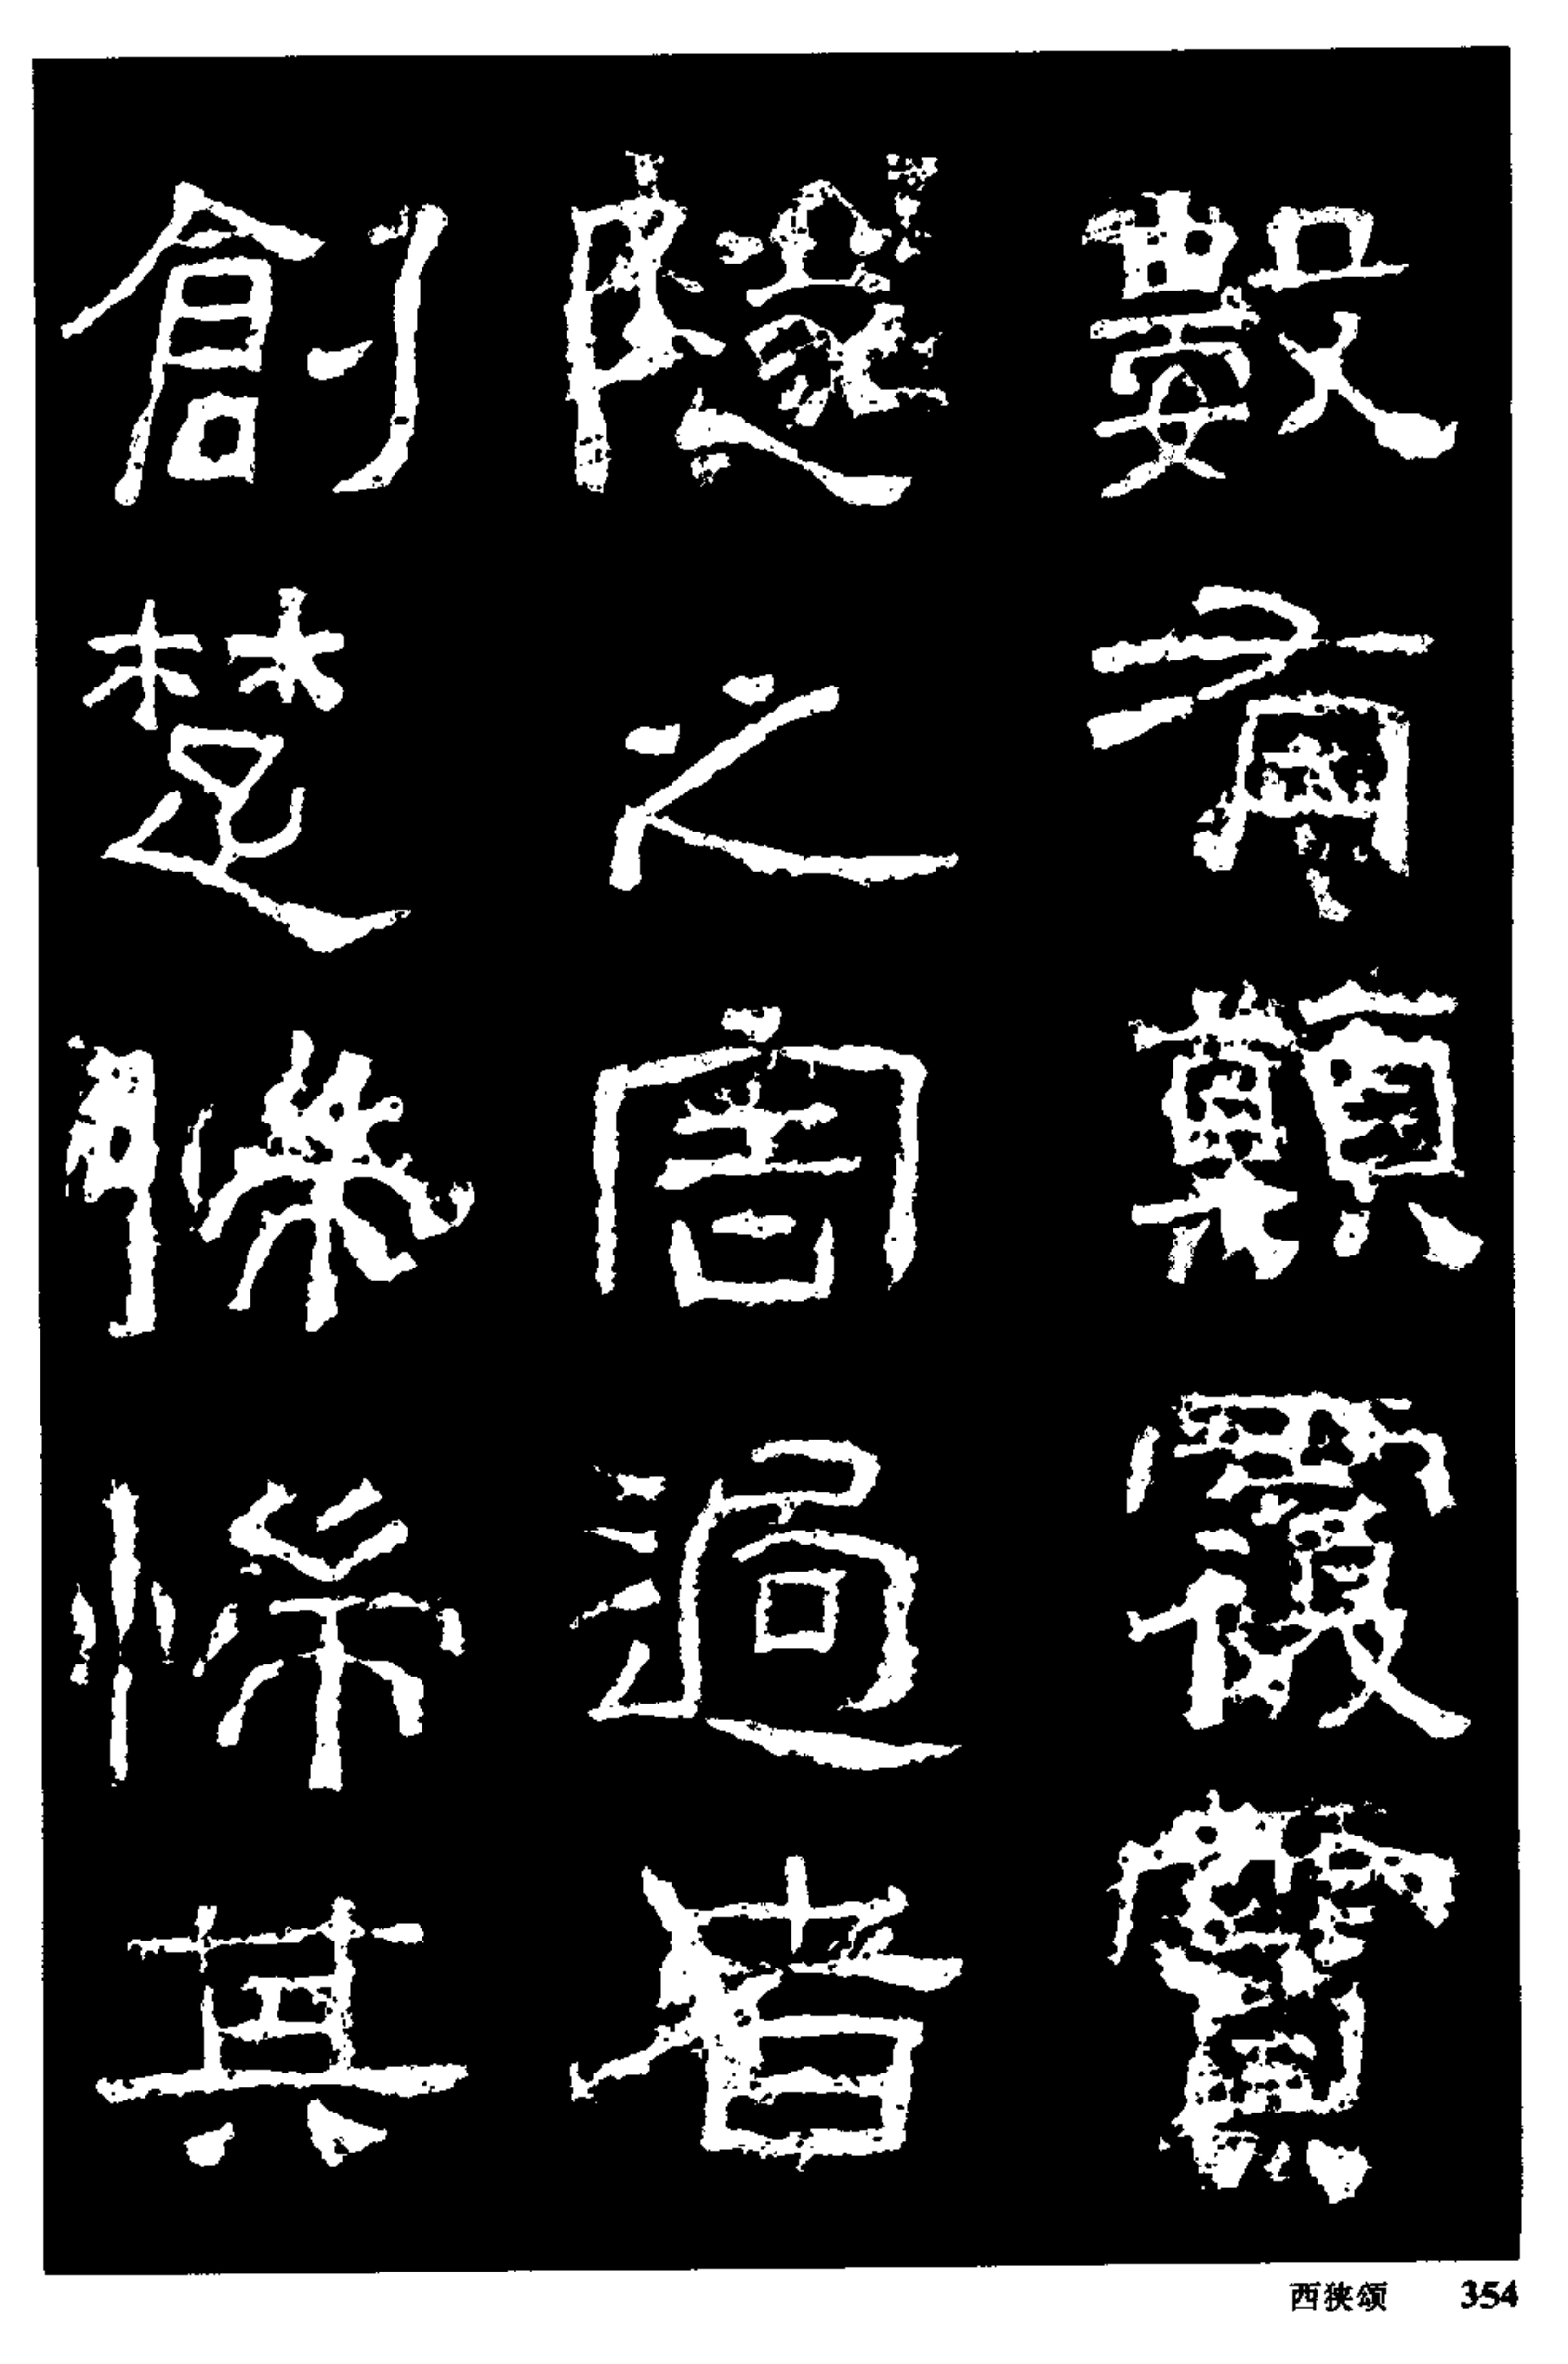 數有顛覆霣
隧之害過者
創楚惴惴其
西狭颂 354